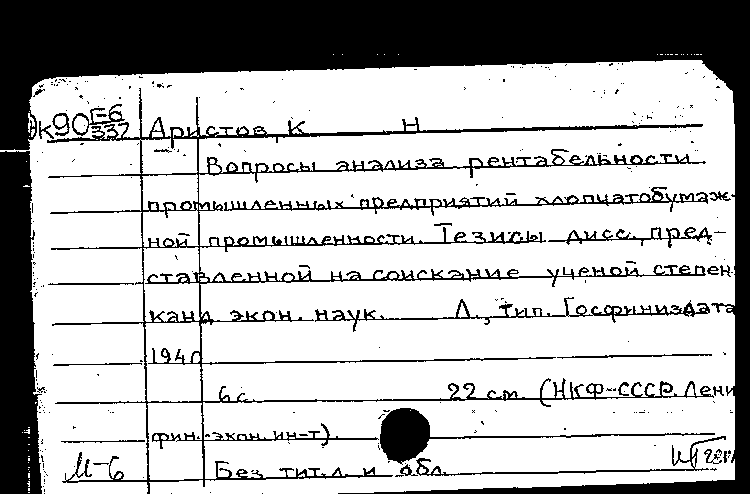 Эк90 Г-6/332 Аристов, К Н
Вопросы анализа рентабельности
промышленных предприятий хлопчатобумаж-
ной промышленности. Тезисы дисс., пред-
ставленной на соискание ученой степен
канд экон. наук. Л., тип. Госфиниздата
1940
6 с. 22 см. (НКФ-СССР. Лени
фин.-экон. ин-т).
М-6 Без тит. л. и обл.